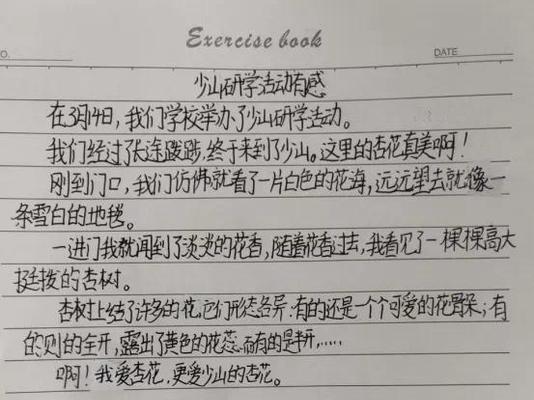 Exercise book
NO.
DATE
少山研学活动有感
在3月14日，我们学校举办了少山研学活动。
我们经过了长途跋涉，终于来到了少山。这里的杏花真美啊！
刚到门口，我们仿佛就看了一片白色的花海，远远望去就像一
条雪白的地毯。
一进门我就闻到了淡淡的花香，随着花香过去，我看见了一棵棵高大
挺拨的杏树。
杏树上结了许多的花，它们形态各异：有的还是一个个可爱的花骨朵；有
的则的全开，露出了黄色的花蕊，而有的是半开……
啊！我爱杏花，更爱少山的杏花。